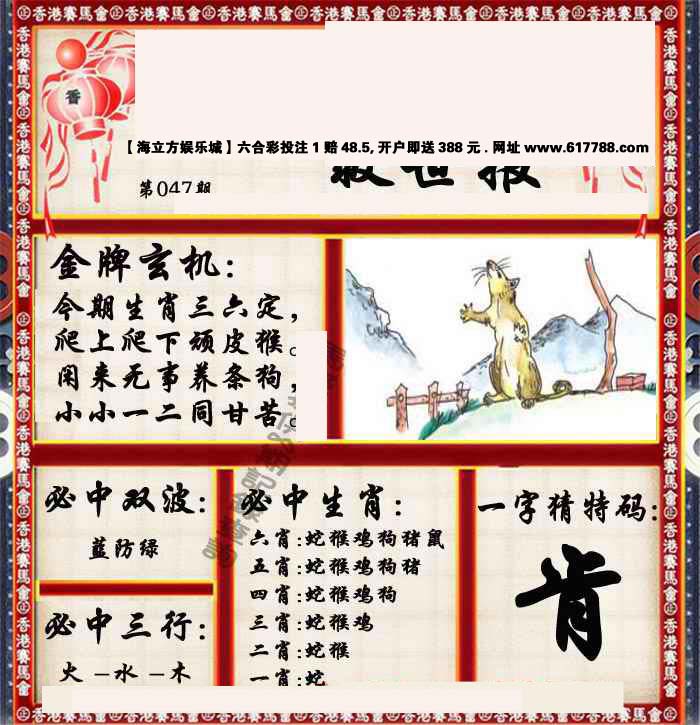 香港賽馬會
香
【海立方娱乐城】六合彩投注1赔48.5,开户即送388元.网址www.617788.com
救世报
第047期
金牌玄机:
今期生肖三六定,
爬上爬下顽皮猴。
闲来无事养条狗,
小小一二同甘苦。
必中双波:
蓝防绿
必中三行:
火－水－木
必中生肖:
六肖:蛇猴鸡狗猪鼠
五肖:蛇猴鸡狗猪
四肖:蛇猴鸡狗
三肖:蛇猴鸡
二肖:蛇猴
一肖:蛇
一字猜特码:
肯